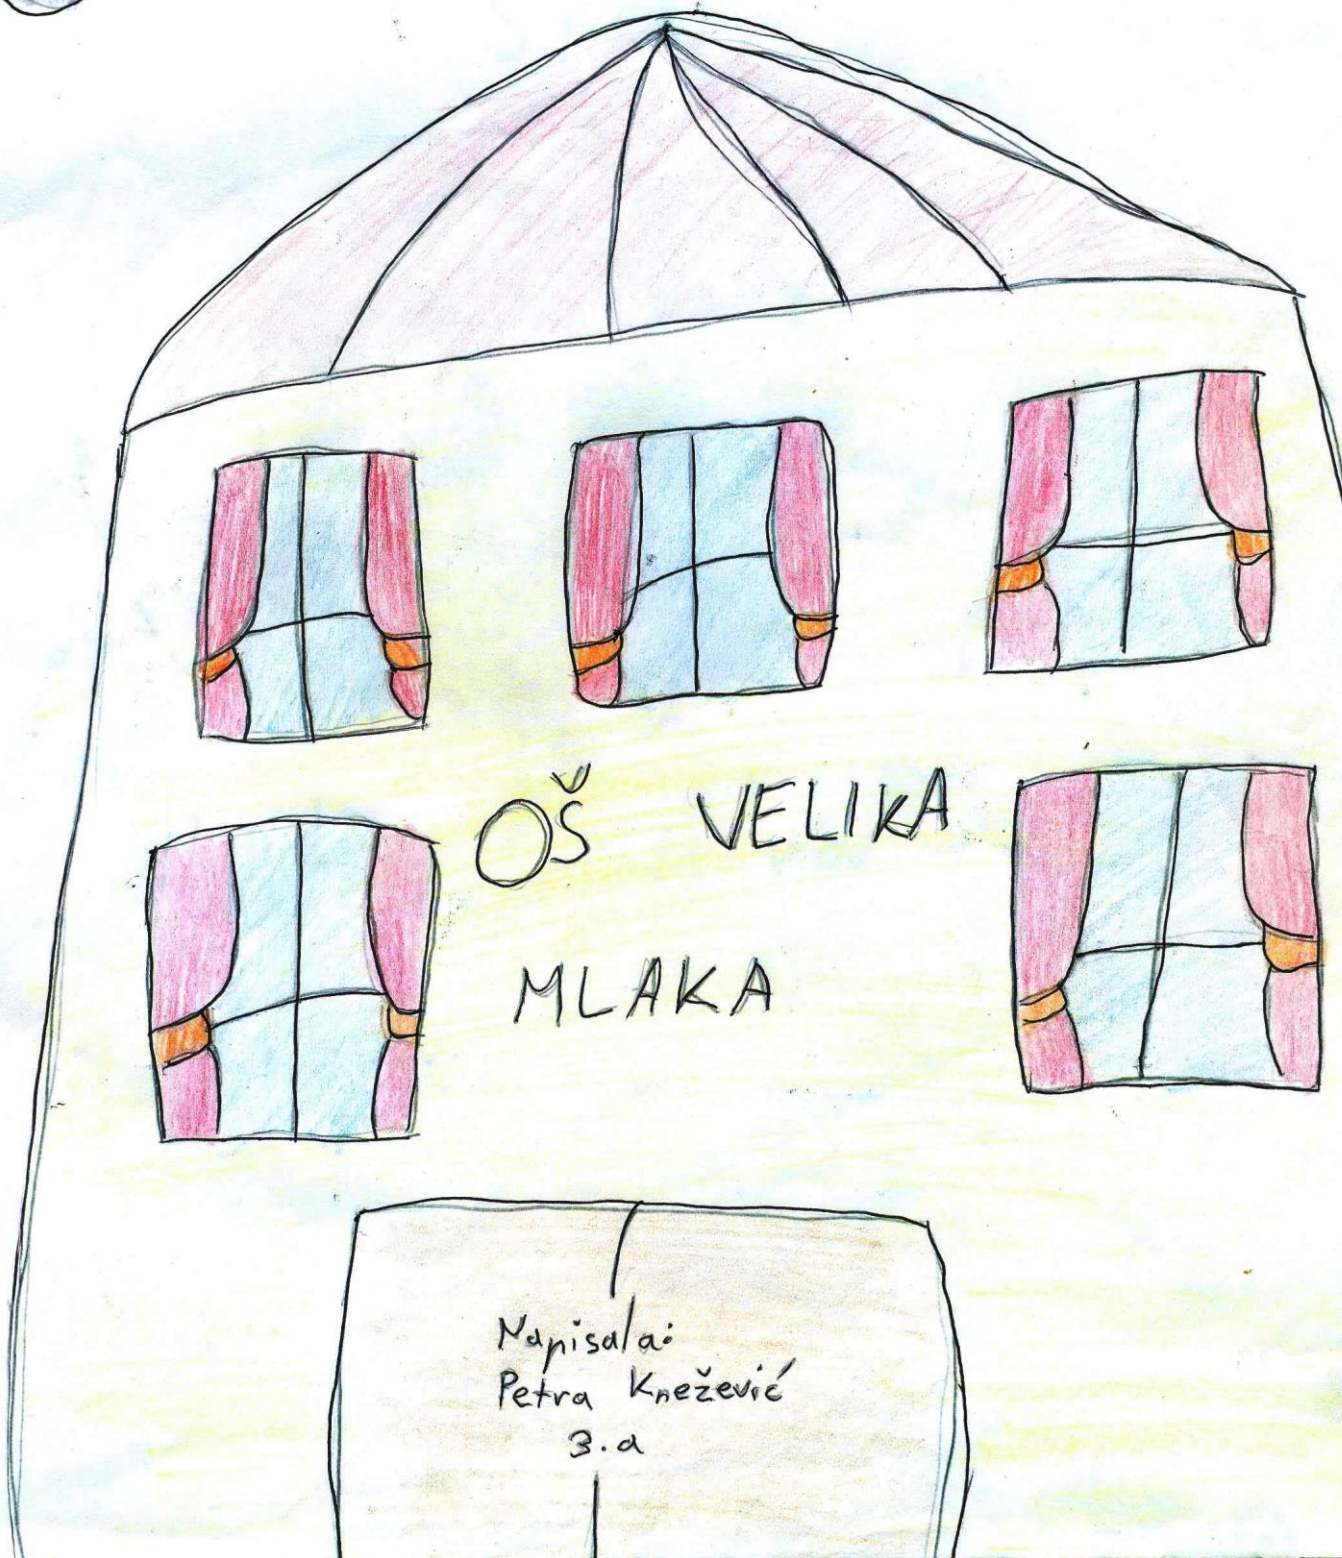 OŠ VELIKA
MLAKA
Napisala:
Petra Knežević
3.a